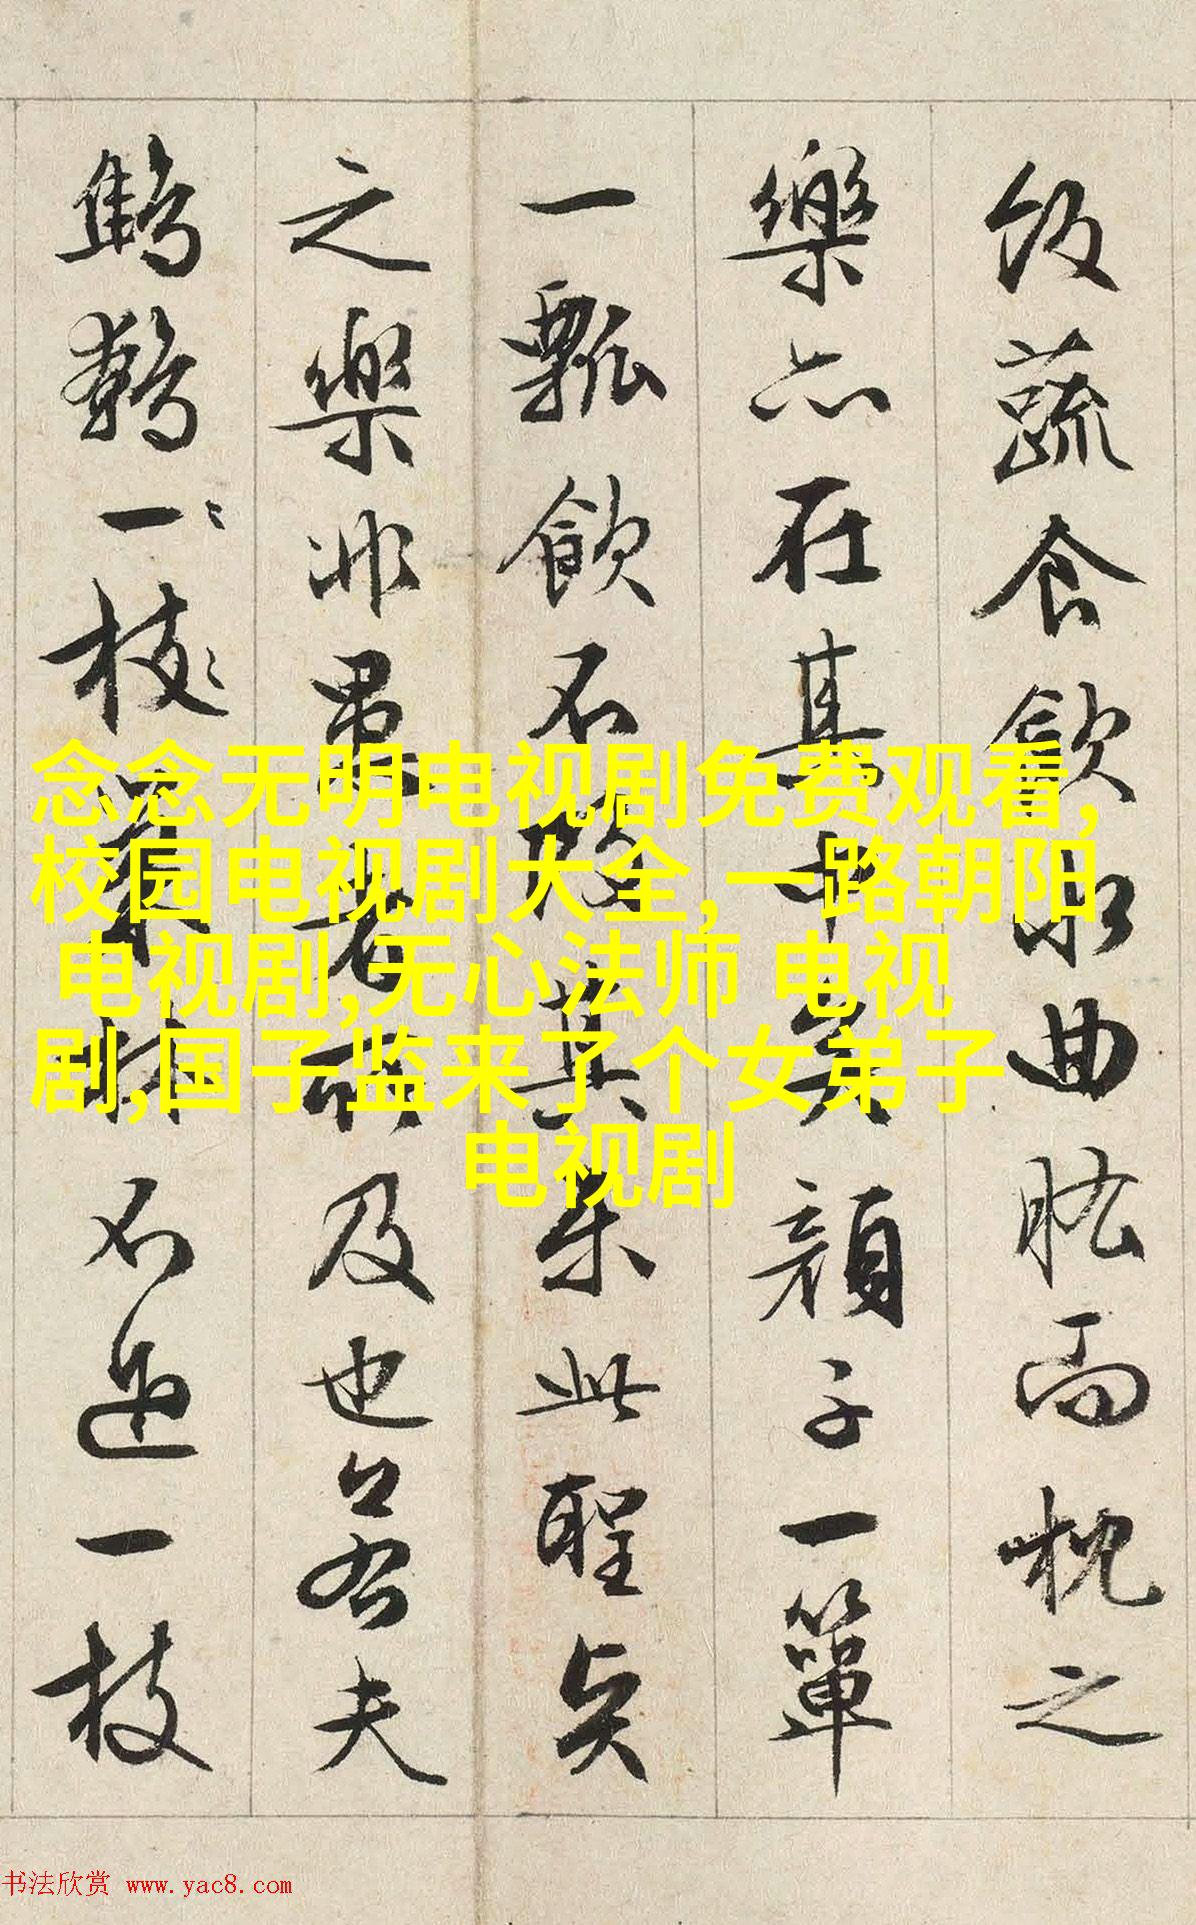 飯蔬食飲水曲肱而枕之
樂亦在其中矣顏子一簞
一瓢飲不改其樂此聖賢
之樂非愚者所及也若夫
鷦鷯一枝巢林不過一枝
念念无明电视剧免费观看,
校园电视剧大全,一路朝阳
电视剧,无心法师 电视
剧,国子监来了个女弟子
电视剧
书法欣赏 www.yac8.com